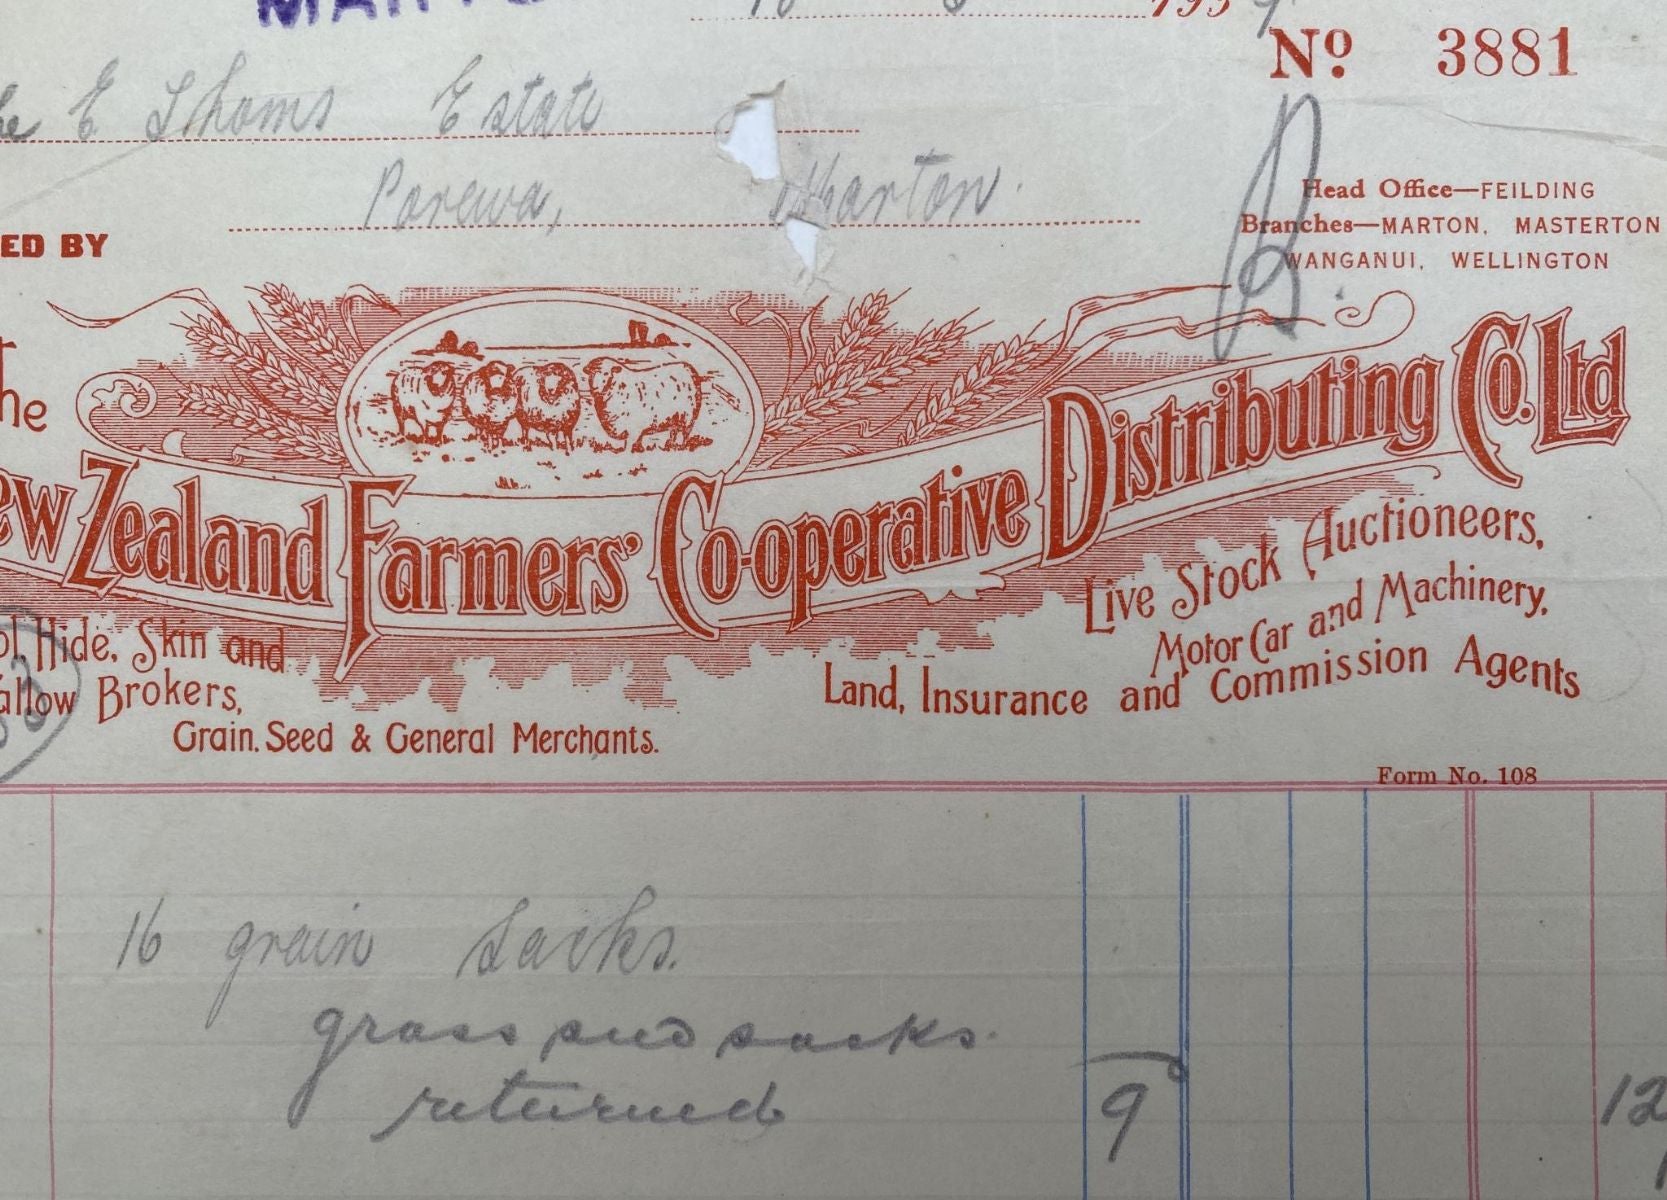 No. 3881
E Thoms Estate
Porewa, Marton.
Head Office—FEILDING
Branches—MARTON. MASTERTON
WANGANUI. WELLINGTON
ED BY
he
ew Zealand Farmers' Co-operative Distributing Co. Ltd
ol, Hide, Skin and
allow Brokers,
Grain. Seed & General Merchants.
Live Stock Auctioneers,
Motor Car and Machinery,
Land, Insurance and Commission Agents
Form No. 108
16 grain sacks.
grass seed sacks.
returned 9 12